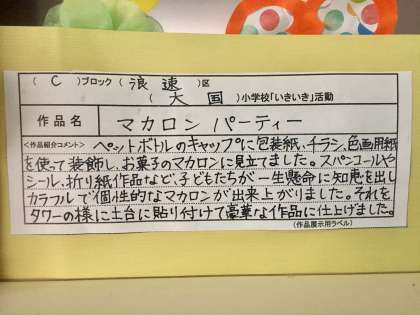 （ C ）ブロック（ 浪速 ）区
（ 大国 ）小学校「いきいき」活動
作品名 マカロンパーティー
<作品紹介コメント> ペットボトルのキャップに包装紙、チラシ、色画用紙
を使って装飾し、お菓子のマカロンに見立てました。スパンコールや
シール、折り紙作品など、子どもたちが一生懸命に知恵を出し
カラフルで個性的なマカロンが出来上がりました。それを
タワーの様に土台に貼り付けて豪華な作品に仕上げました。
（作品展示用ラベル）